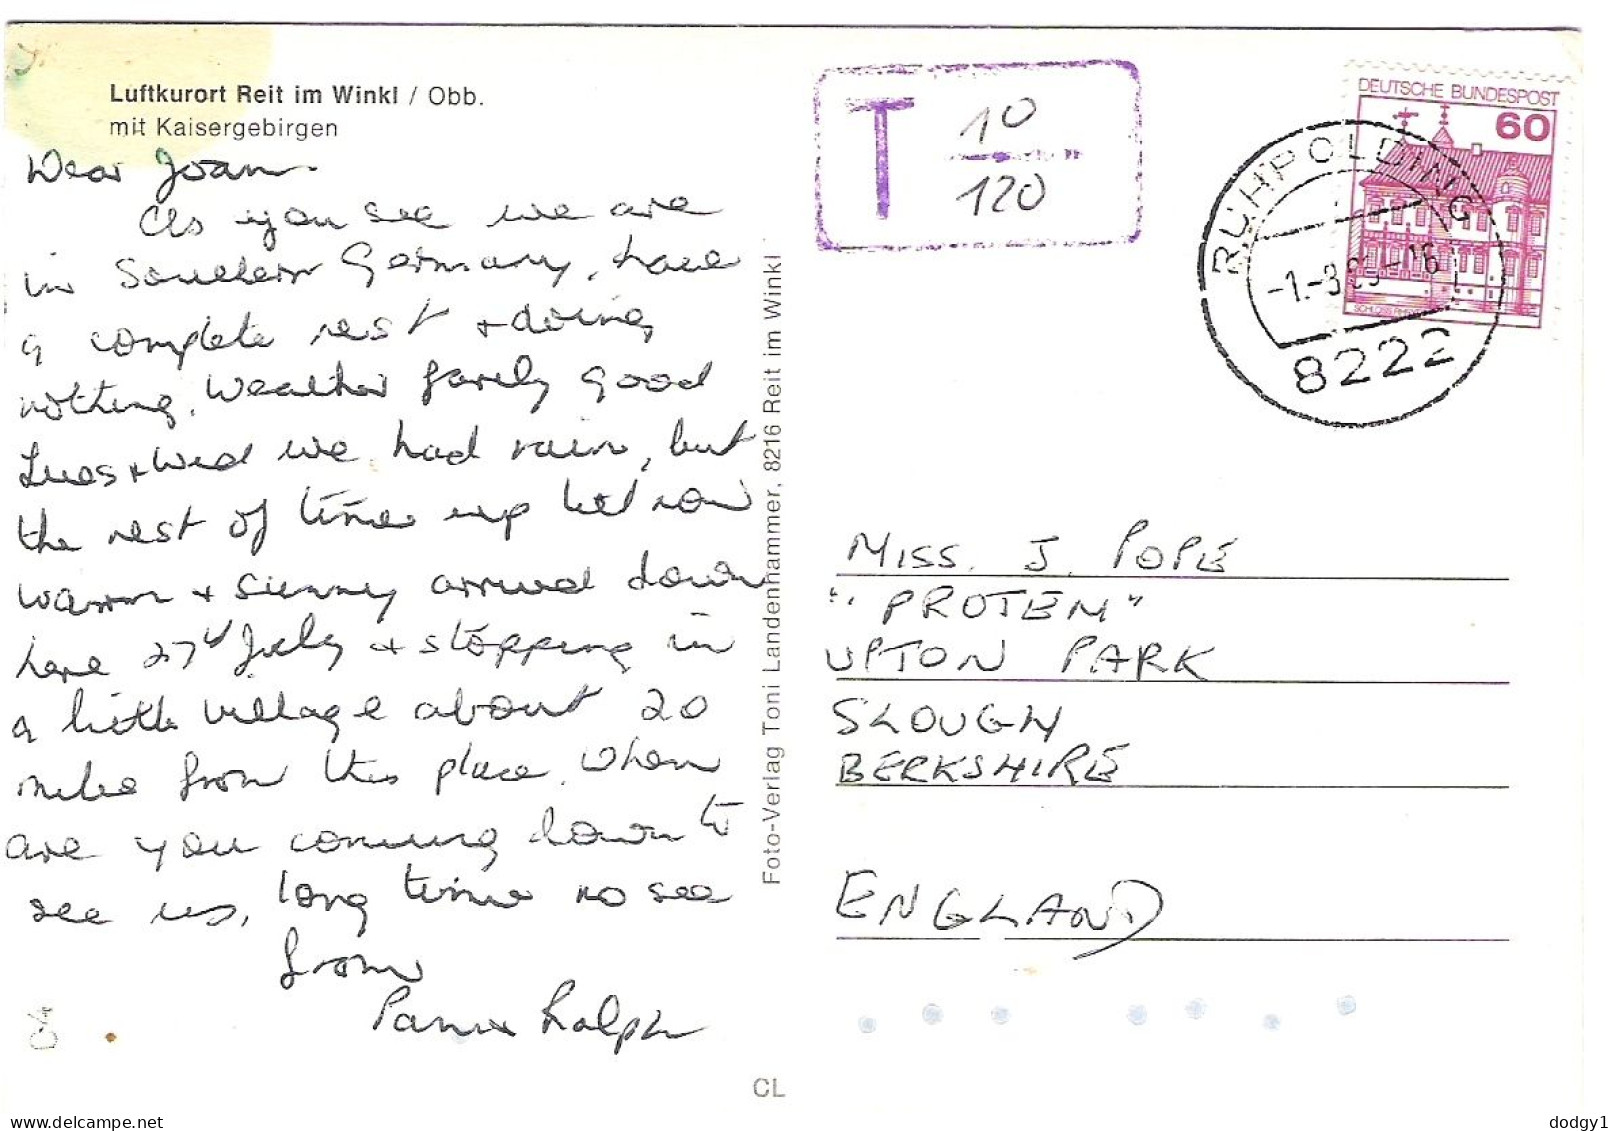 Luftkurort Reit im Winkl / Obb.
mit Kaisergebirgen
Dear Joan.
As you see we are
in Southern Germany, have
a complete rest + doing
nothing. Weather fairly good
Tues + Wed we had rain, but
the rest of time up till now
warm + sunny arrived down
here 27th July + stopping in
a little village about 20
miles from this place. When
are you coming down to
see us, long time no see
from
Pam + Ralph
CL
Foto-Verlag Toni Landenhammer, 8216 Reit im Winkl
T 10
120
DEUTSCHE BUNDESPOST
60
RUHPOLDING
8222
MISS. J. POPE
"PROTEM"
UPTON PARK
SLOUGH
BERKSHIRE
ENGLAND
dodgy1
www.delcampe.net